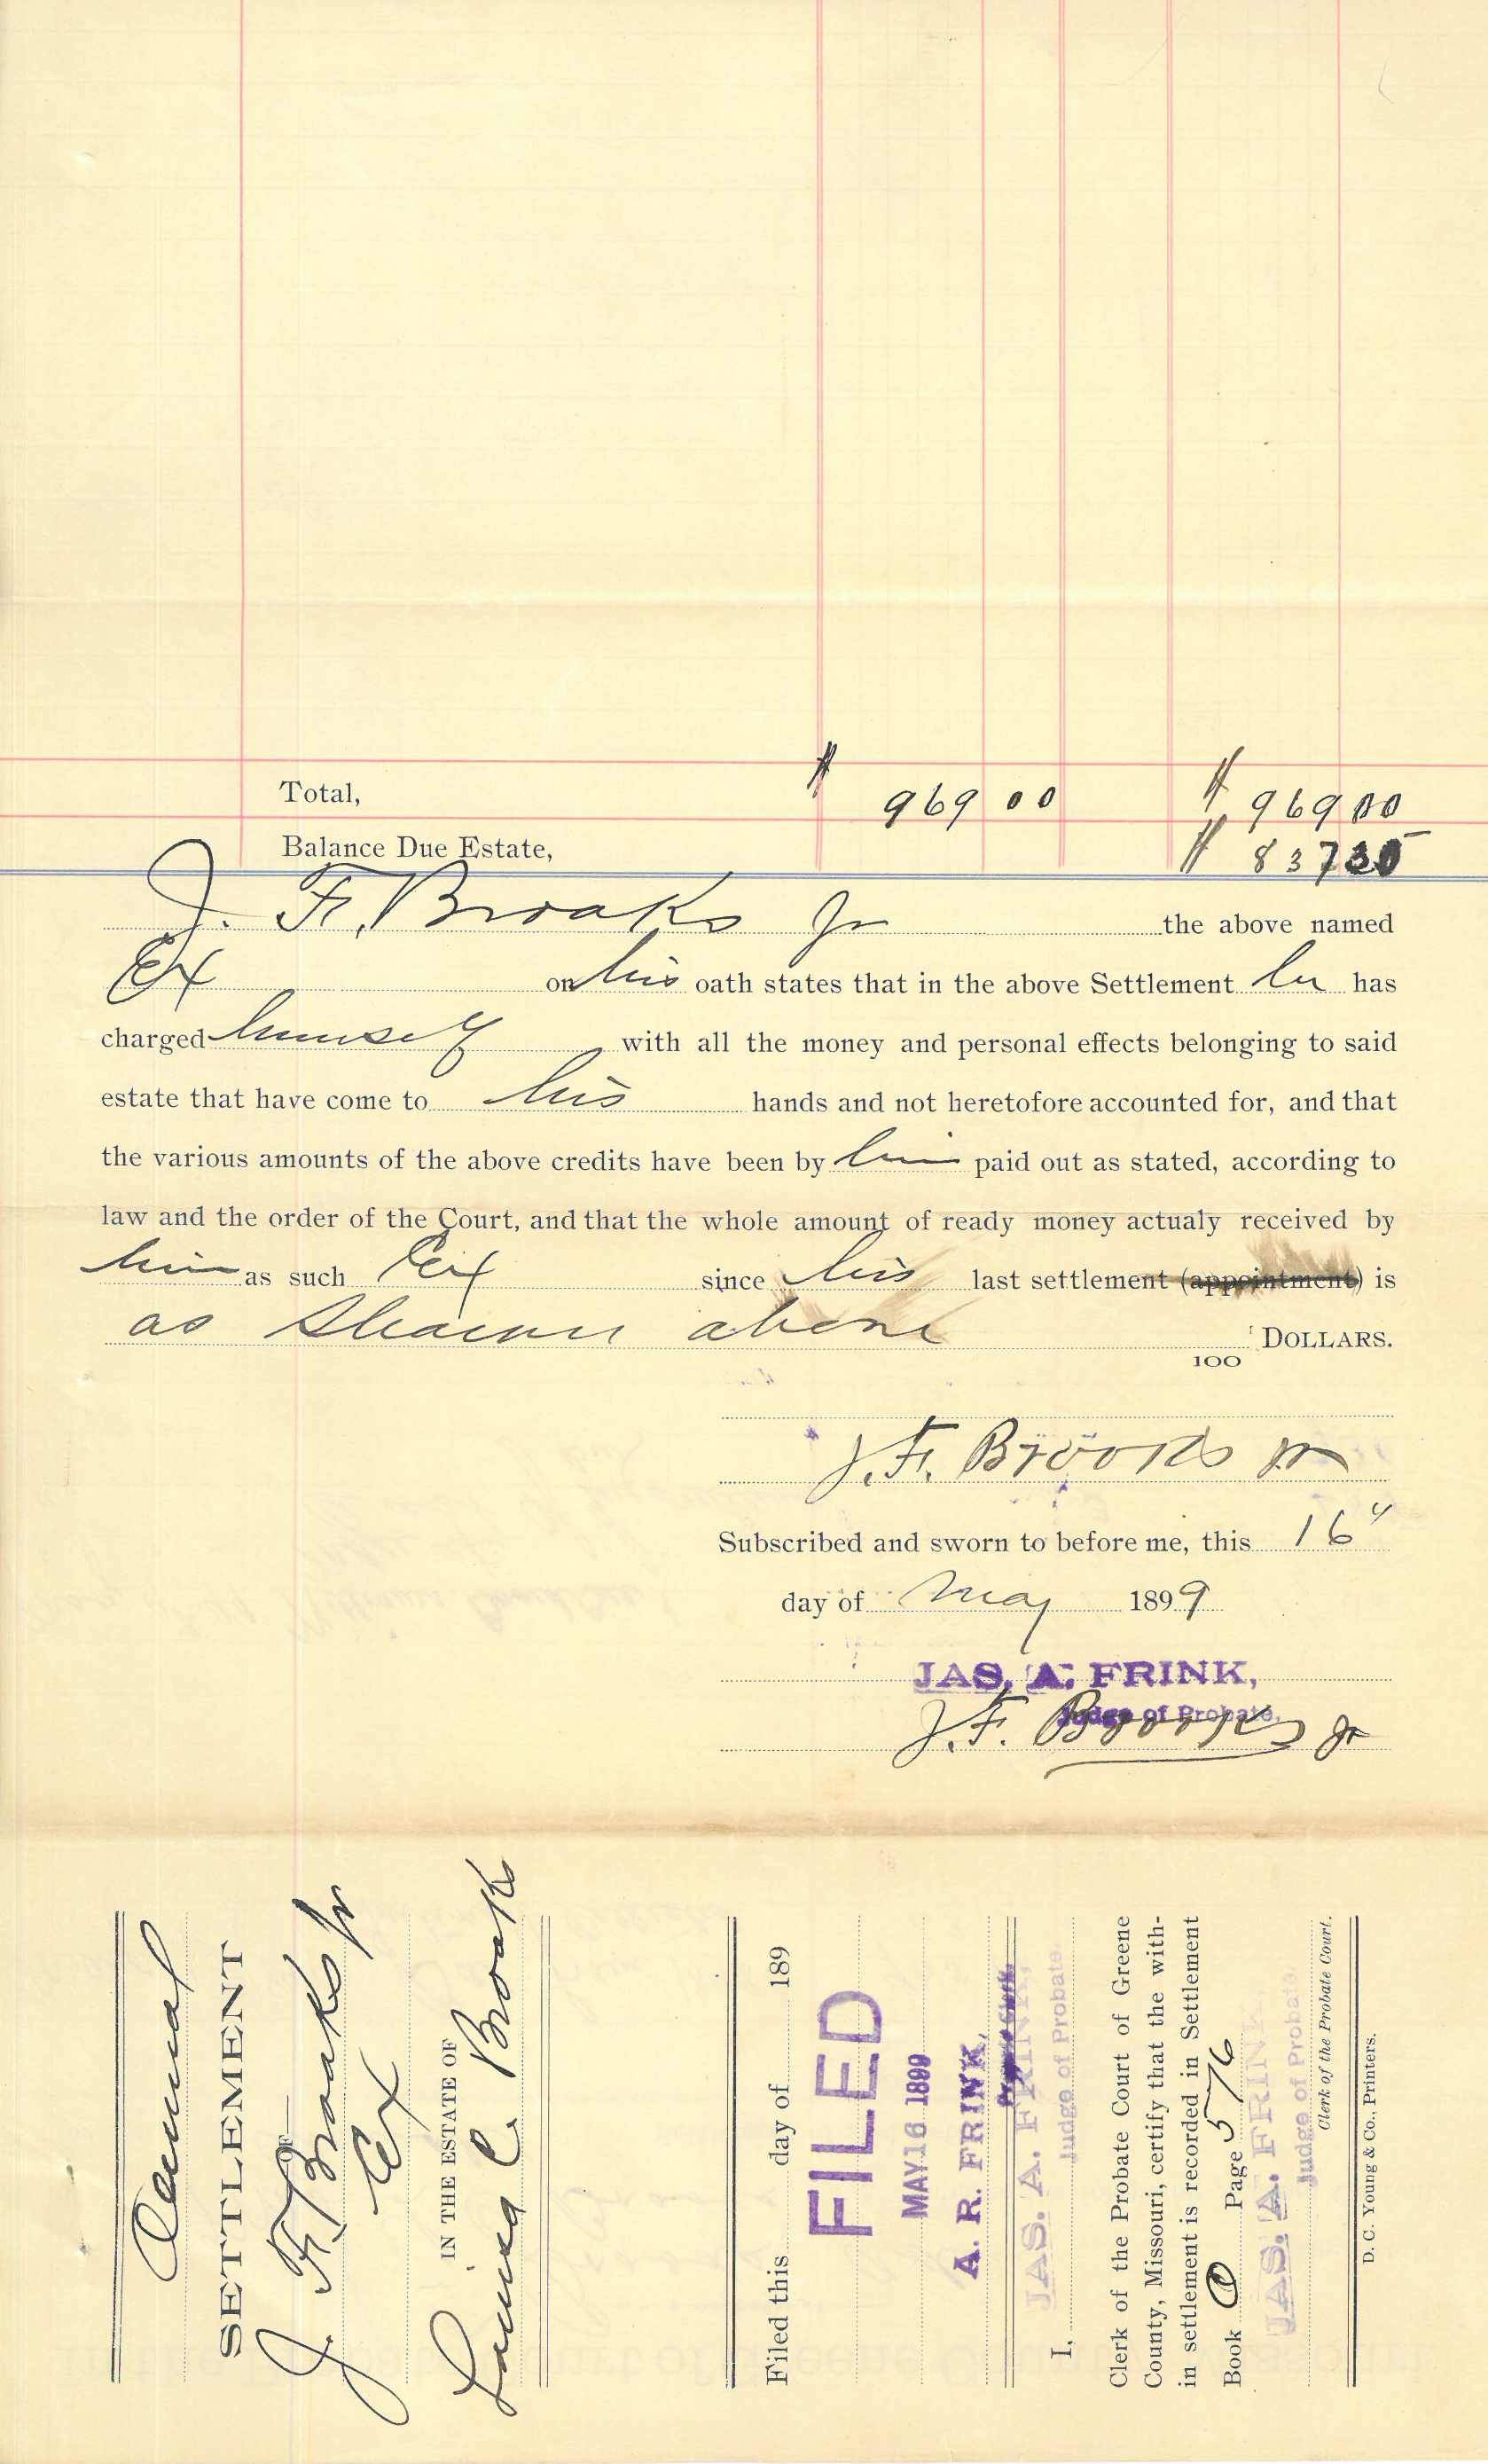 Total, $ 969 00 $ 969 00
Balance Due Estate, $ 837
J. F. Brooks Jr the above named
Ex on his oath states that in the above Settlement he has
charged himself with all the money and personal effects belonging to said
estate that have come to his hands and not heretofore accounted for, and that
the various amounts of the above credits have been by him paid out as stated, according to
law and the order of the Court, and that the whole amount of ready money actualy received by
him as such Ex since his last settlement (appointment) is
as Shown above
100 DOLLARS.
J. F. Brooks Jr
Subscribed and sworn to before me, this 16"
day of May 1899
JAS. A. FRINK,
Judge of Probate.
J. F. Brooks Jr
Annual
SETTLEMENT
OF
J. F. Brooks Jr
Ex
IN THE ESTATE OF
C. Brooks
Filed this day of 189
FILED
MAY 16 1899
A. R. FRINK,
JAS. A. FRINK,
Judge of Probate.
I,
Clerk of the Probate Court of Greene
County, Missouri, certify that the with-
in settlement is recorded in Settlement
Book O Page 576
JAS. A. FRINK,
Judge of Probate.
Clerk of the Probate Court.
D. C. Young & Co., Printers.